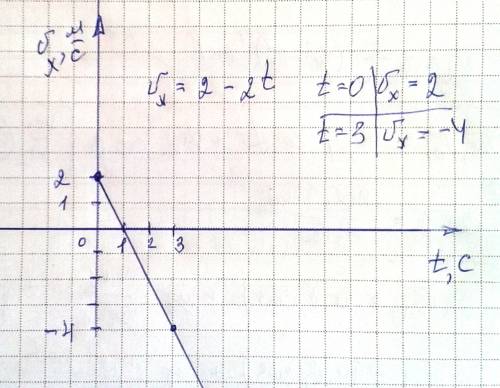 υₓ, м/с
υₓ = 2 - 2t
t=0 | υₓ = 2
t=3 | υₓ = -4
2
1
0 1 2 3
t, c
-4